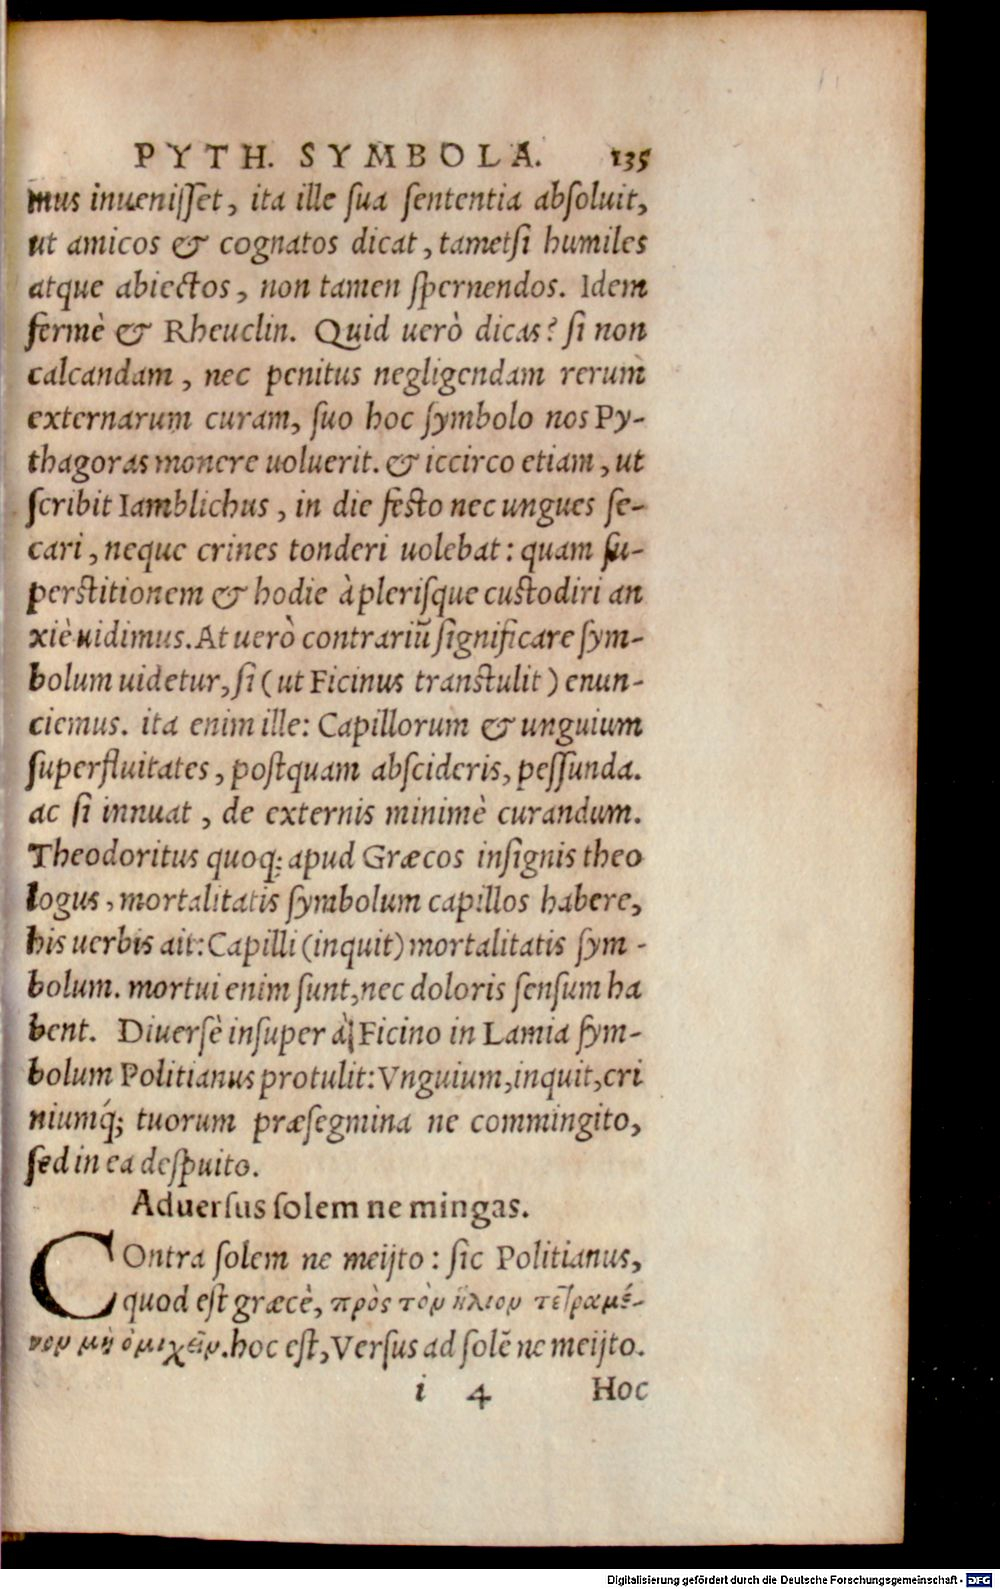 PYTH. SYMBOLA. 135
mus inuenisset, ita ille sua sententia absoluit,
ut amicos & cognatos dicat, tametsi humiles
atque abiectos, non tamen spernendos. Idem
fermè & Rheuclin. Quid uerò dicas? si non
calcandam, nec penitus negligendam rerum
externarum curam, suo hoc symbolo nos Py-
thagoras monere uoluerit. & iccirco etiam, ut
scribit Iamblichus, in die festo nec ungues se-
cari, neque crines tonderi uolebat: quam su-
perstitionem & hodie à plerisque custodiri an
xiè uidimus. At uerò contrariũ significare sym-
bolum uidetur, si (ut Ficinus transtulit) enun-
ciemus. ita enim ille: Capillorum & unguium
superfluitates, postquam abscideris, pessunda.
ac si innuat, de externis minimè curandum.
Theodoritus quoq; apud Græcos insignis theo
logus, mortalitatis symbolum capillos habere,
his uerbis ait: Capilli (inquit) mortalitatis sym-
bolum. mortui enim sunt, nec doloris sensum ha
bent. Diuersè insuper à Ficino in Lamia sym-
bolum Politianus protulit: Vnguium, inquit, cri
niumq́; tuorum præsegmina ne commingito,
sed in ea despuito.
Aduersus solem ne mingas.
COntra solem ne meijto: sic Politianus,
quod est græcè, πρὸς τὸν ἥλιον τετραμέ-
νον μὴ ὀμιχεῖν. hoc est, Versus ad solẽ ne meijto.
i 4 Hoc
Digitalisierung gefördert durch die Deutsche Forschungsgemeinschaft - DFG